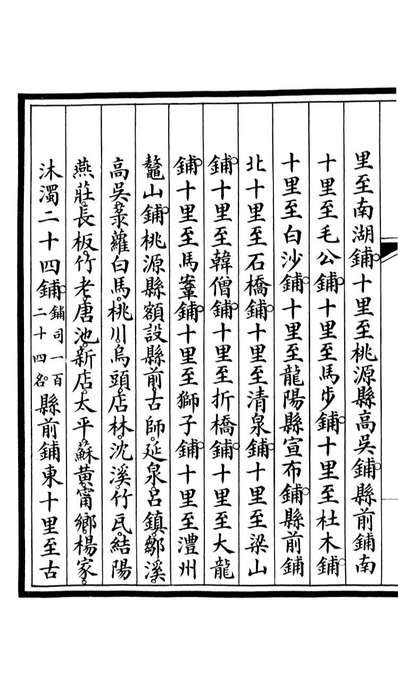 里至南湖鋪十里至桃源縣高吳鋪縣前鋪南
十里至毛公鋪十里至馬步鋪十里至杜木鋪
十里至白沙鋪十里至龍陽縣宣布鋪縣前鋪
北十里至石橋鋪十里至清泉鋪十里至梁山
鋪十里至韓僧鋪十里至折橋鋪十里至大龍
鋪十里至馬鞌鋪十里至獅子鋪十里至澧州
鼇山鋪桃源縣額設縣前古師延泉呂鎮鄒溪
高吳淥蘿白馬桃川烏頭店林沈溪竹瓦結陽
燕莊長板竹老唐池新店太平蘇黃甯鄉楊家
沐濁二十四鋪鋪司一百二十四名縣前鋪東十里至古